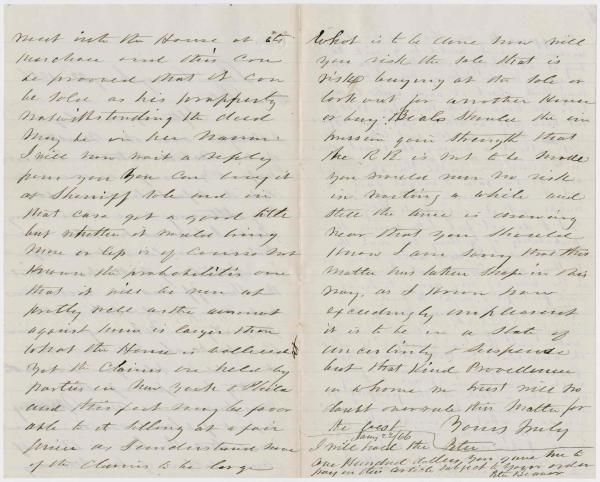 ment into the House at its
purchase and this can
be prooved that it can
be sold as his propperty
notwithstanding the deed
may be in her name
I will now wait a reply
from you You can buy it
at Sherriff sale and in
that case get a good title
but whether it would bring
more or less is of course not
known the probabilitis are
that it will be run up
pretty well as the amount
against him is larger than
what the House is
yet the Claims are held by
parties in New York & Phila
and this fact may be favor
able to it selling at a fair
price as I understand some
of the Claims to be large
What is to be done now will
you risk the sale that is
risk buying at the sale or
look out for another House
or buy Beals Should the im
pression gain strength that
the R R is not to be made
you would run no risk
in waiting a while and
still the time is drawing
near that you should
know I am sorry that this
matter has taken shape in this
way, as I know how
exceedingly unpleasant
it is to be in a State of
uncertinty & suspense
but that Kind Providence
in whome we trust will no
doubt overrule this matter for
the best Yours truly
Jany 22/66 Peter
I will hold the
One Hundred dollars you gave me to
pay on this article subject to your order
Peter